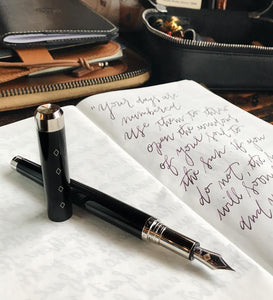 "Your days are
numbered.
Use them to throw
open the windows
of your soul to
the sun. if you
do not, the
will soon
and